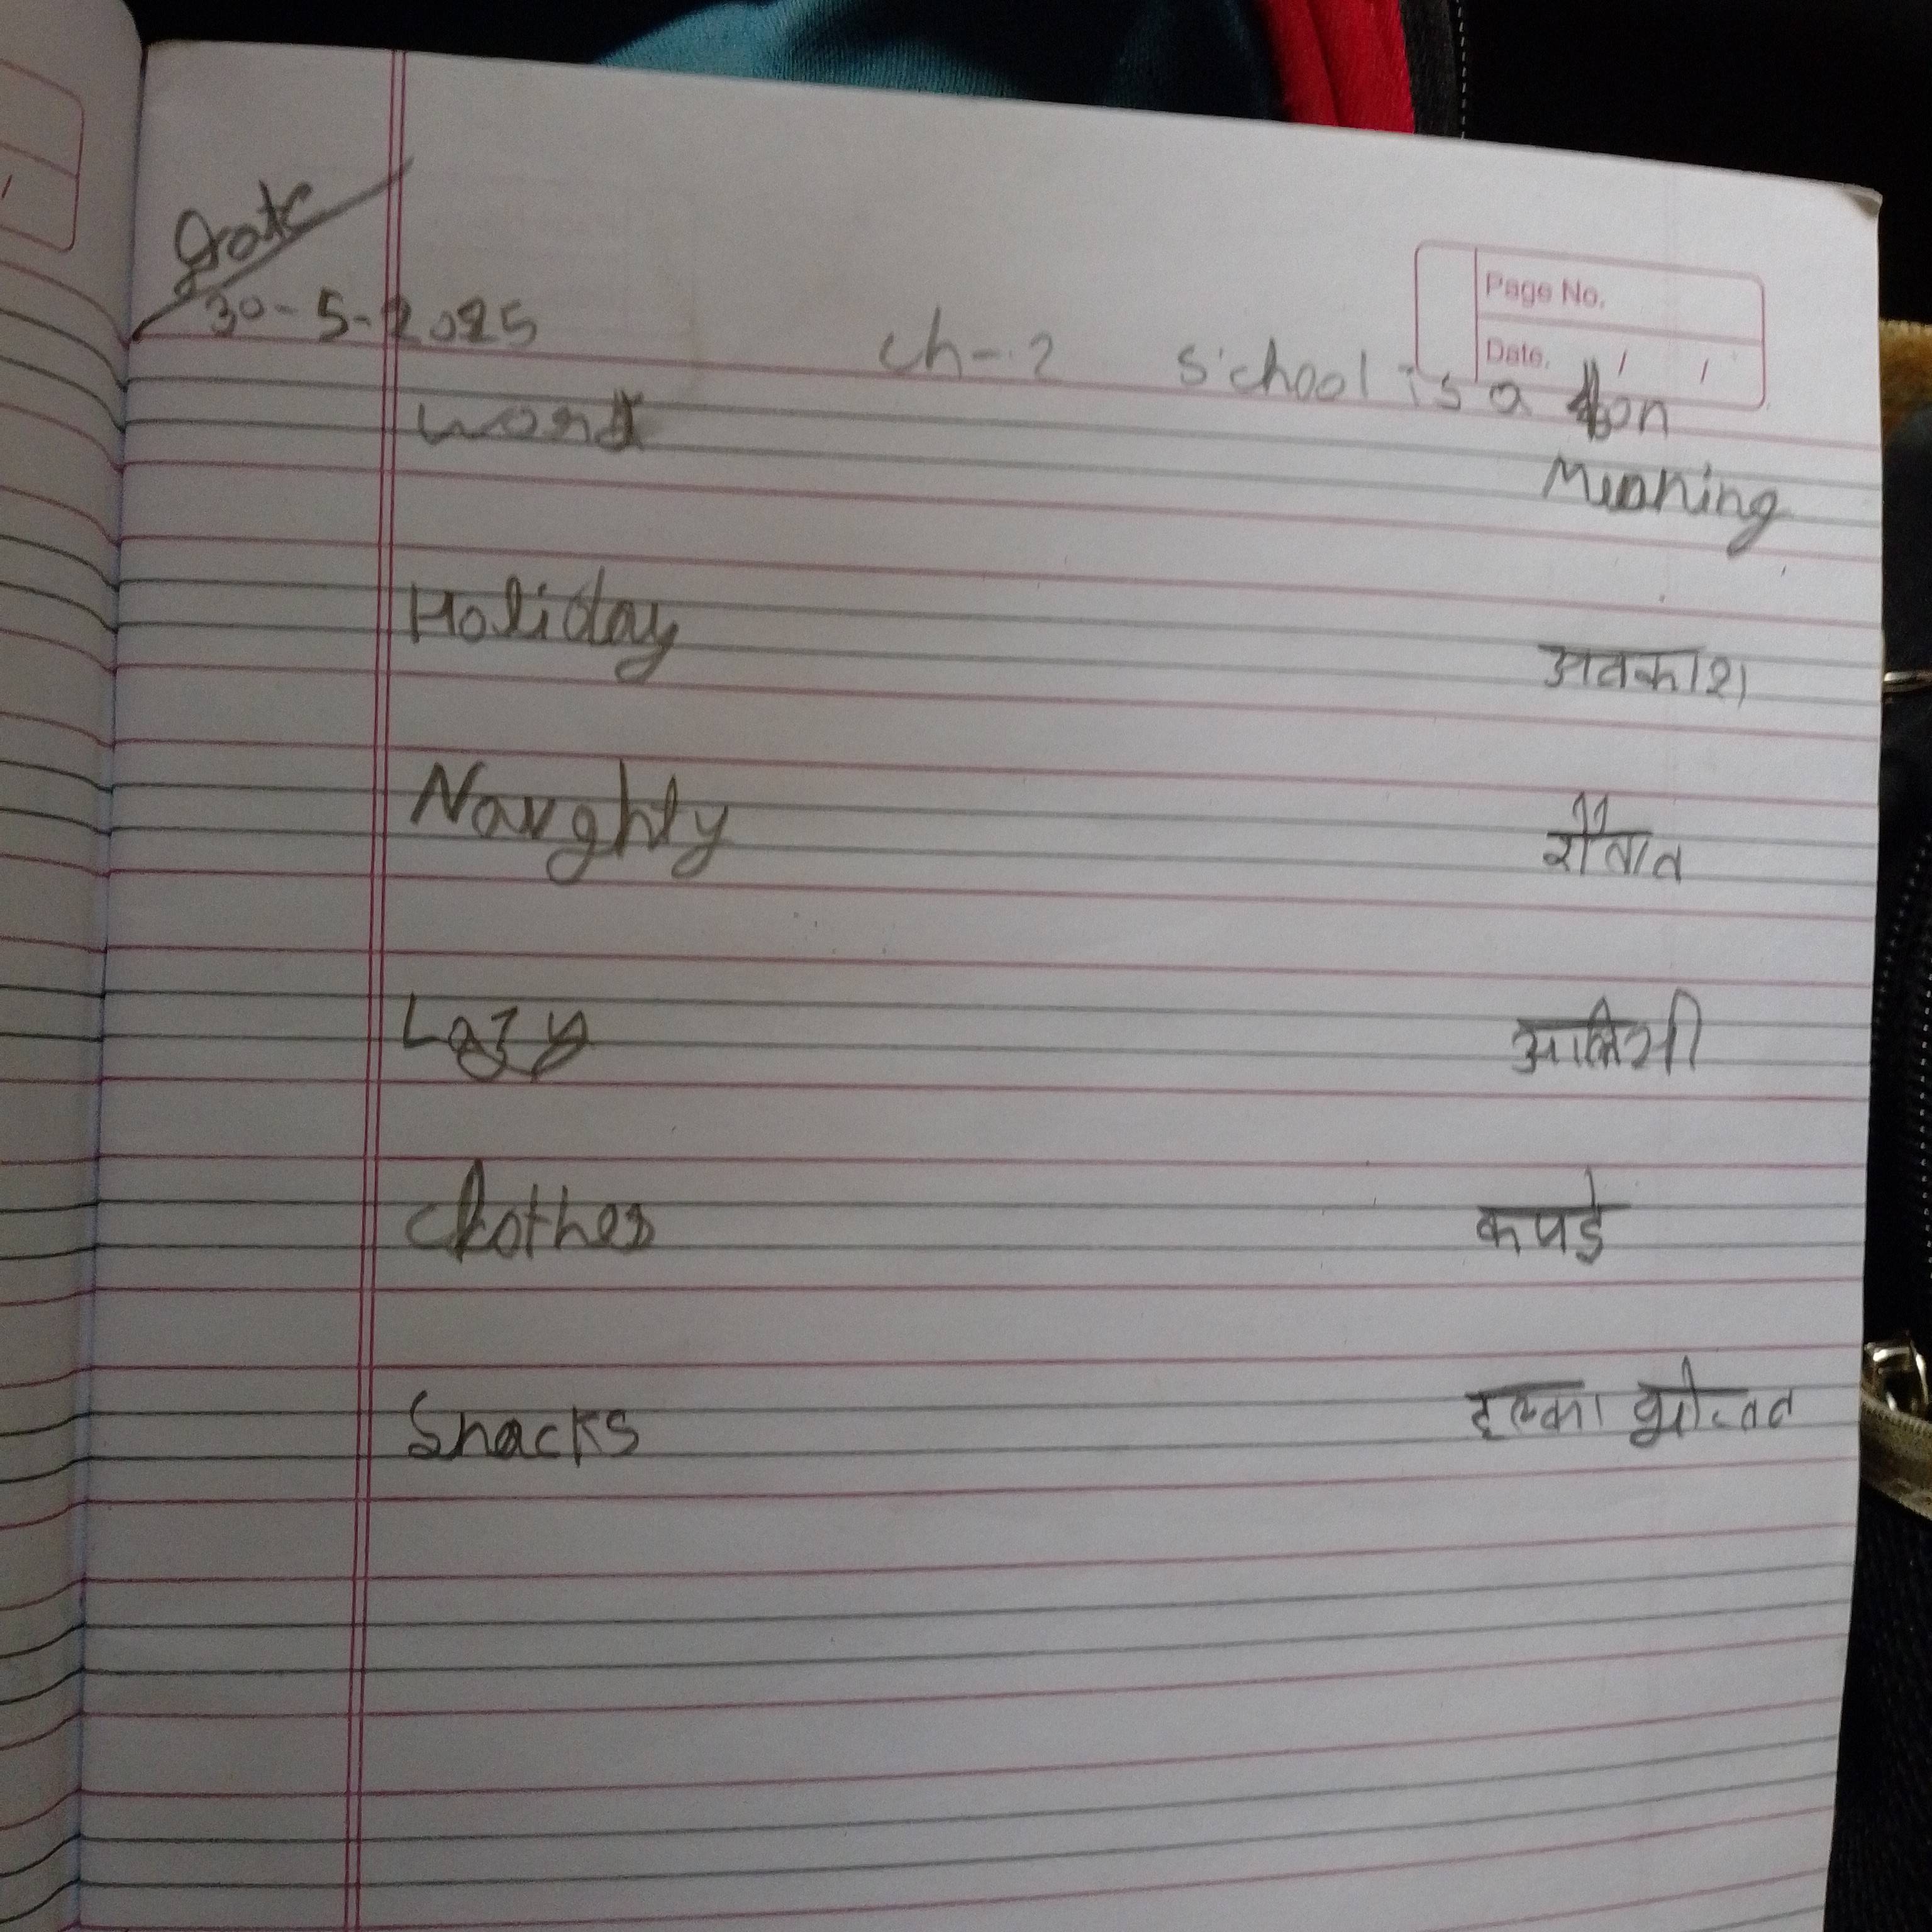 Date
30-5-2025
Page No.
Date. / /
ch-2 school is a fon
word Meaning
Holiday अवकाश
Naughty शैतान
Lazy आलिसी
Clothes कपडे
Snacks हल्का भोजन